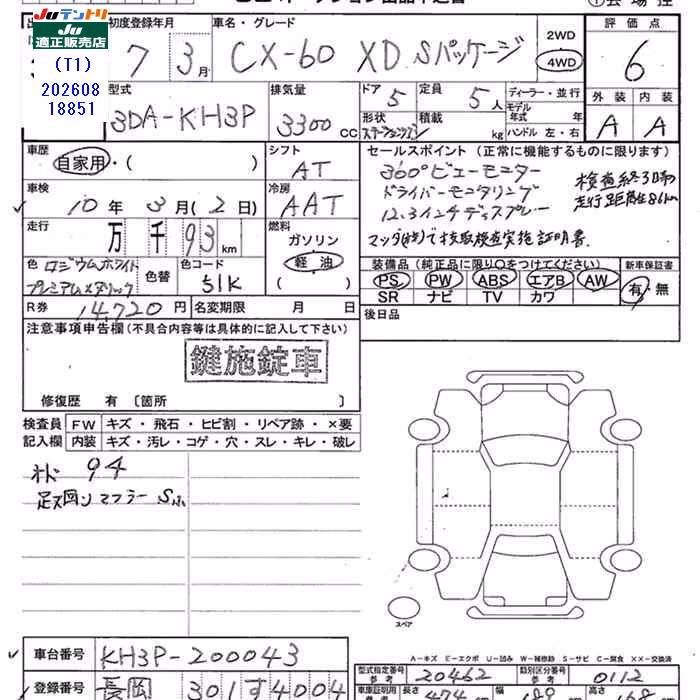 JUテントリ
JU適正販売店
(T1)
202608
18851
初度登録年月
7年 3月
車名・グレード
CX-60 XD Sパッケージ
2WD
4WD
評価点
6
型式
3DA-KH3P
排気量
3300 CC
ドア
5
定員
5人
形状
積載
kg
ディーラー・並行
モデル年式 年
ハンドル 左・右
外装
内装
A
A
車歴
自家用・( )
シフト
AT
車検
10年 3月(2日)
冷房
AAT
走行
万千93km
燃料
ガソリン
軽油
色 ロジウムホワイトプレミアムメタリック
色替
色コード
51K
R券
14,720円
名変期限 月 日
セールスポイント (正常に機能するものに限ります)
360°ビューモニター
ドライバーモニタリング
12.3インチディスプレー
装備品 (純正品に限り○をつけてください)
新車保証書
PS PW ABS エアB AW
有・無
SR ナビ TV カワ
後日品
注意事項申告欄(不具合内容等は具体的に記入して下さい)
鍵施錠車
修復歴 有 〔箇所 〕
検査員記入欄
FW キズ・飛石・ヒビ割・リペア跡・×要
内装 キズ・汚レ・コゲ・穴・スレ・キレ・破レ
オド 94
スペア
A-キズ E-エクボ U-凹み W-補修跡 S-サビ C-腐食 XX-交換済
車台番号
KH3P-200043
型式指定番号
参考
20462
類別区分番号
参考
0112
登録番号
長岡 301す4004
長さ
474
幅
189
高さ
168